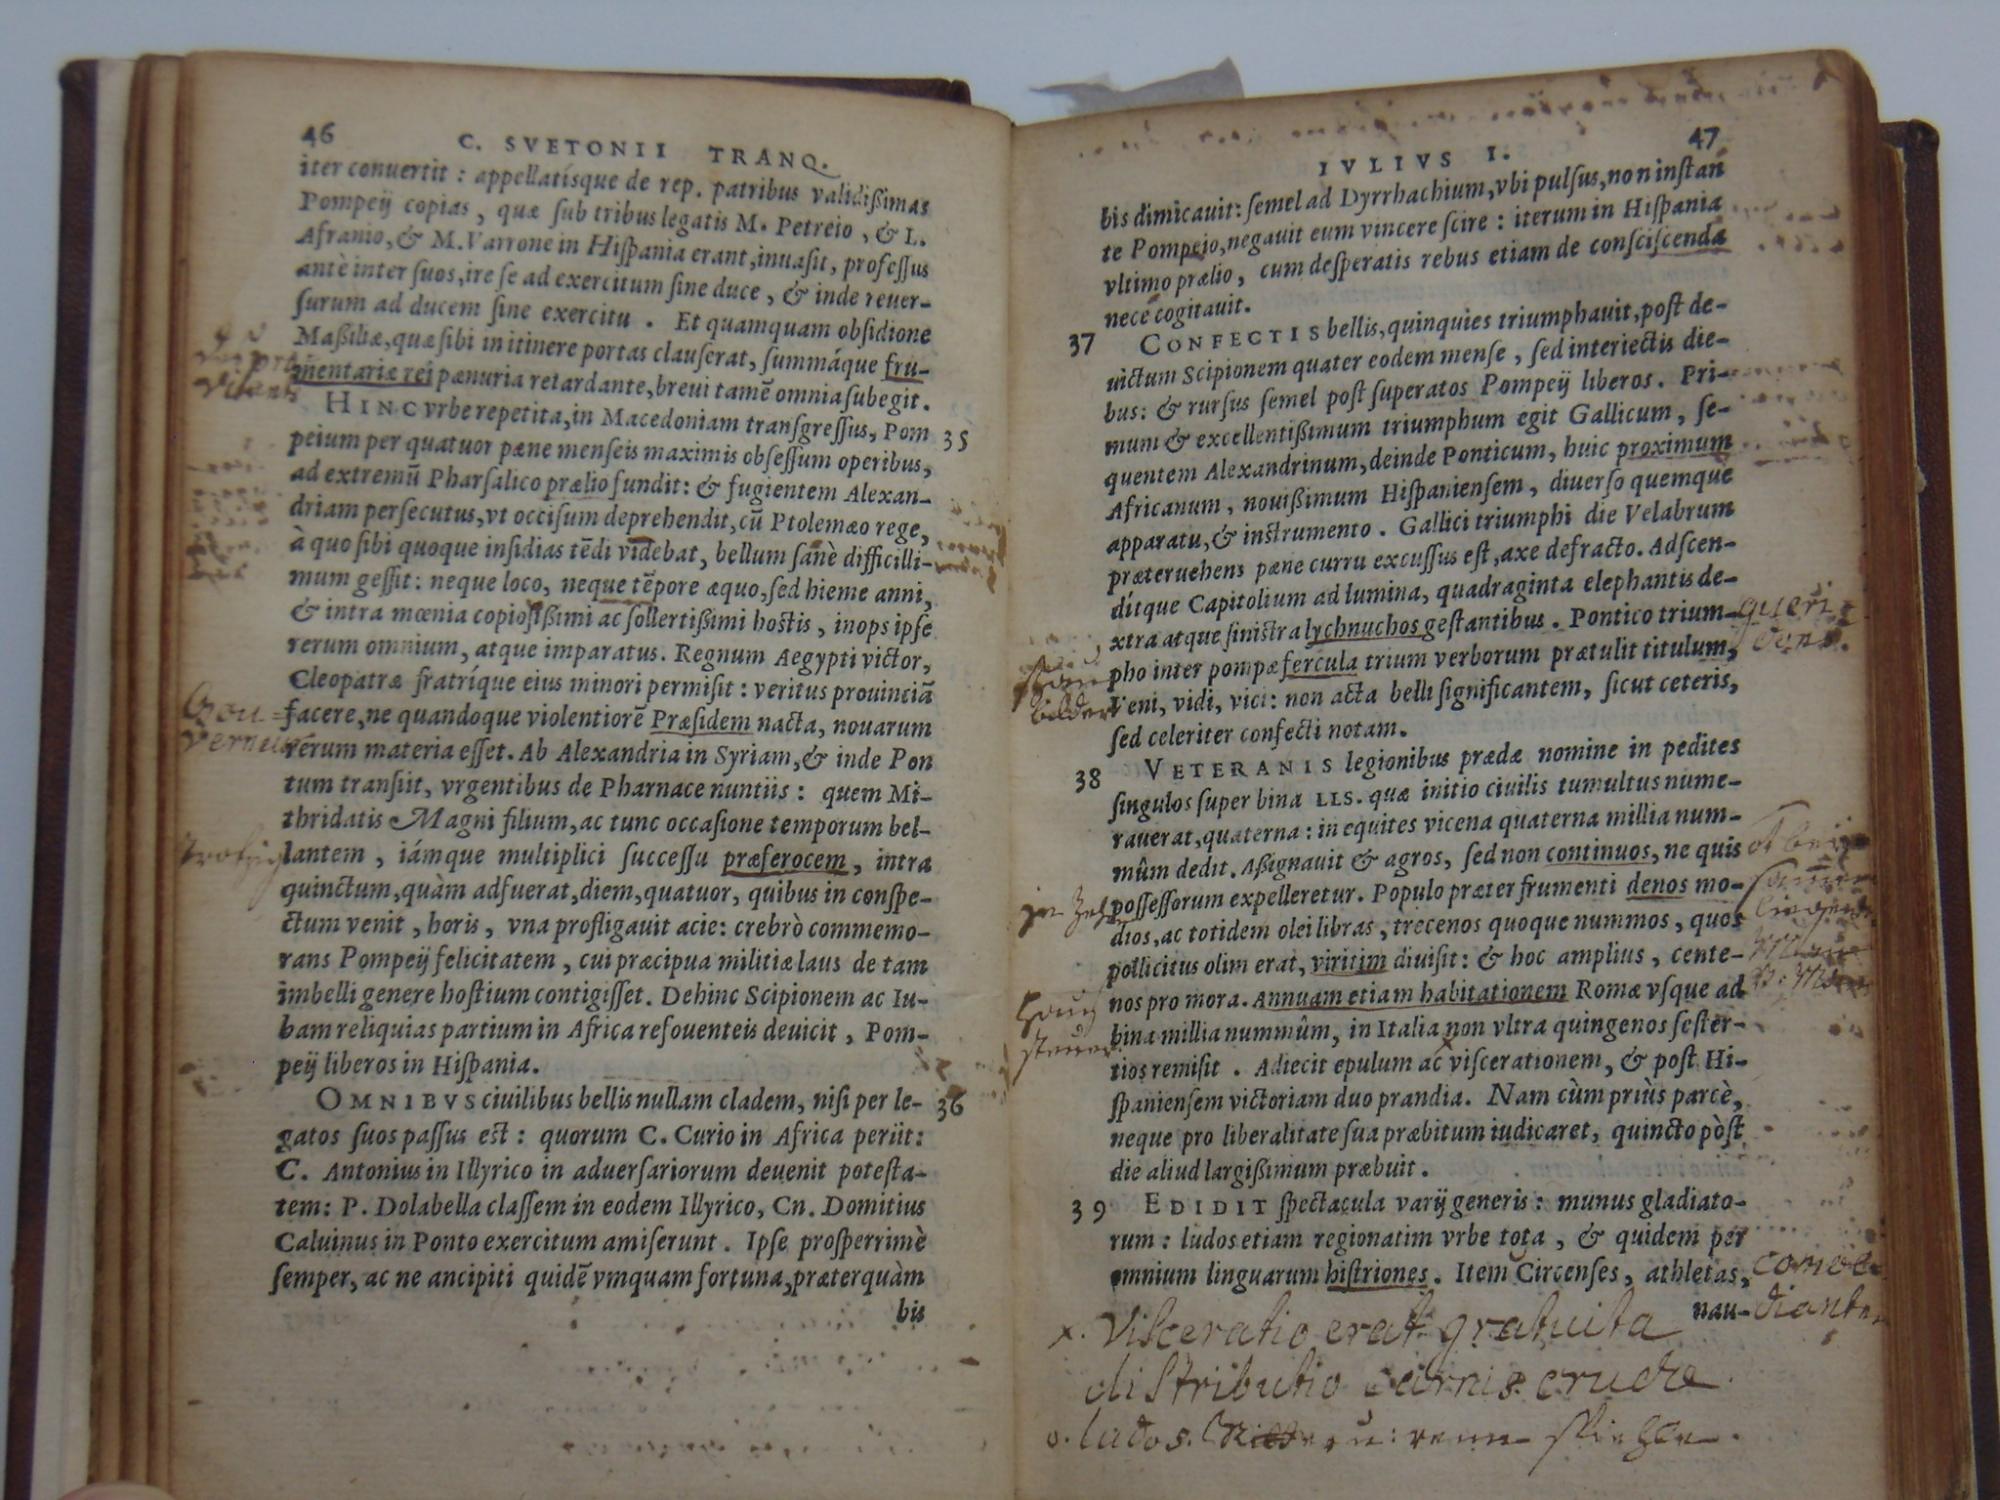 46
C. SVETONII TRANQ.
iter conuertit : appellatísque de rep. patribus validißimas
Pompeij copias, quæ ſub tribus legatis M. Petreio, & L.
Afranio, & M. Varrone in Hiſpania erant, inuaſit, profeſſus
antè inter ſuos, ire ſe ad exercitum ſine duce, & inde reuer-
ſurum ad ducem ſine exercitu. Et quamquam obſidione
Maßiliæ, quæ ſibi in itinere portas clauſerat, ſummáque fru-
mentariæ rei pænuria retardante, breui tamē omnia ſubegit.
HINC vrbe repetita, in Macedoniam tranſgreſſus, Pom
35
peium per quatuor pæne menſeis maximis obſeſſum operibus,
ad extremũ Pharſalico prælio fundit: & fugientem Alexan-
driam perſecutus, vt occiſum deprehendit, cũ Ptolemæo rege,
à quo ſibi quoque inſidias tēdi videbat, bellum ſanè difficilli-
mum geſſit: neque loco, neque tēpore æquo, ſed hieme anni,
& intra mœnia copioſißimi ac ſollertißimi hoſtis, inops ipſe
rerum omnium, atque imparatus. Regnum Aegypti victor,
Cleopatræ fratríque eius minori permiſit : veritus prouinciā
Gou=
facere, ne quandoque violentiorē Præſidem nacta, nouarum
rerum materia eſſet. Ab Alexandria in Syriam, & inde Pon
tum tranſiit, vrgentibus de Pharnace nuntiis : quem Mi-
thridatis Magni filium, ac tunc occaſione temporum bel-
lantem, iámque multiplici ſucceſſu præferocem, intra
quinctum, quàm adfuerat, diem, quatuor, quibus in conſpe-
ctum venit, horis, vna profligauit acie: crebrò commemo-
rans Pompeij felicitatem, cui præcipua militiæ laus de tam
imbelli genere hoſtium contigiſſet. Dehinc Scipionem ac Iu-
bam reliquias partium in Africa refouenteis deuicit, Pom-
peij liberos in Hiſpania.
OMNIBVS ciuilibus bellis nullam cladem, niſi per le-
36
gatos ſuos paſſus eſt : quorum C. Curio in Africa periit:
C. Antonius in Illyrico in aduerſariorum deuenit poteſta-
tem: P. Dolabella claſſem in eodem Illyrico, Cn. Domitius
Caluinus in Ponto exercitum amiſerunt. Ipſe proſperrimè
ſemper, ac ne ancipiti quidē vmquam fortuna, præterquàm
bis
47
IVLIVS I.
bis dimicauit: ſemel ad Dyrrhachium, vbi pulſus, non inſtan
te Pompeio, negauit eum vincere ſcire : iterum in Hiſpania
vltimo prælio, cum deſperatis rebus etiam de conſciſcenda
nece cogitauit.
37
CONFECTIS bellis, quinquies triumphauit, poſt de-
uictum Scipionem quater eodem menſe, ſed interiectis die-
bus: & rurſus ſemel poſt ſuperatos Pompeij liberos. Pri-
mum & excellentißimum triumphum egit Gallicum, ſe-
quentem Alexandrinum, deinde Ponticum, huic proximum
Africanum, nouißimum Hiſpanienſem, diuerſo quemque
apparatu, & inſtrumento. Gallici triumphi die Velabrum
præteruehens pæne curru excuſſus eſt, axe defracto. Adſcen-
dítque Capitolium ad lumina, quadraginta elephantis de-
xtra atque ſiniſtra lychnuchos geſtantibus. Pontico trium-
pho inter pompæ fercula trium verborum prætulit titulum,
bilder
Veni, vidi, vici: non acta belli ſignificantem, ſicut ceteris,
ſed celeriter confecti notam.
38
VETERANIS legionibus prædæ nomine in pedites
ſingulos ſuper bina LLS. quæ initio ciuilis tumultus nume-
rauerat, quaterna : in equites vicena quaterna millia num-
mûm dedit. Aßignauit & agros, ſed non continuos, ne quis
poſſeſſorum expelleretur. Populo præter frumenti denos mo-
dios, ac totidem olei libras, trecenos quoque nummos, quos
pollicitus olim erat, viritim diuiſit: & hoc amplius, cente-
nos pro mora. Annuam etiam habitationem Romæ vſque ad
bina millia nummûm, in Italia non vltra quingenos ſeſter-
steuer
tios remiſit. Adiecit epulum ac viſcerationem, & poſt Hi-
ſpanienſem victoriam duo prandia. Nam cùm priùs parcè,
neque pro liberalitate ſua præbitum iudicaret, quincto pòſt
die aliud largißimum præbuit.
39
EDIDIT ſpectacula varij generis : munus gladiato-
rum : ludos etiam regionatim vrbe tota, & quidem per
omnium linguarum hiſtriones. Item Circenſes, athletas,
comoe
nau-
dianten
x. Visceratio erat gratuita
distributio carnis crudæ
o. ludos.